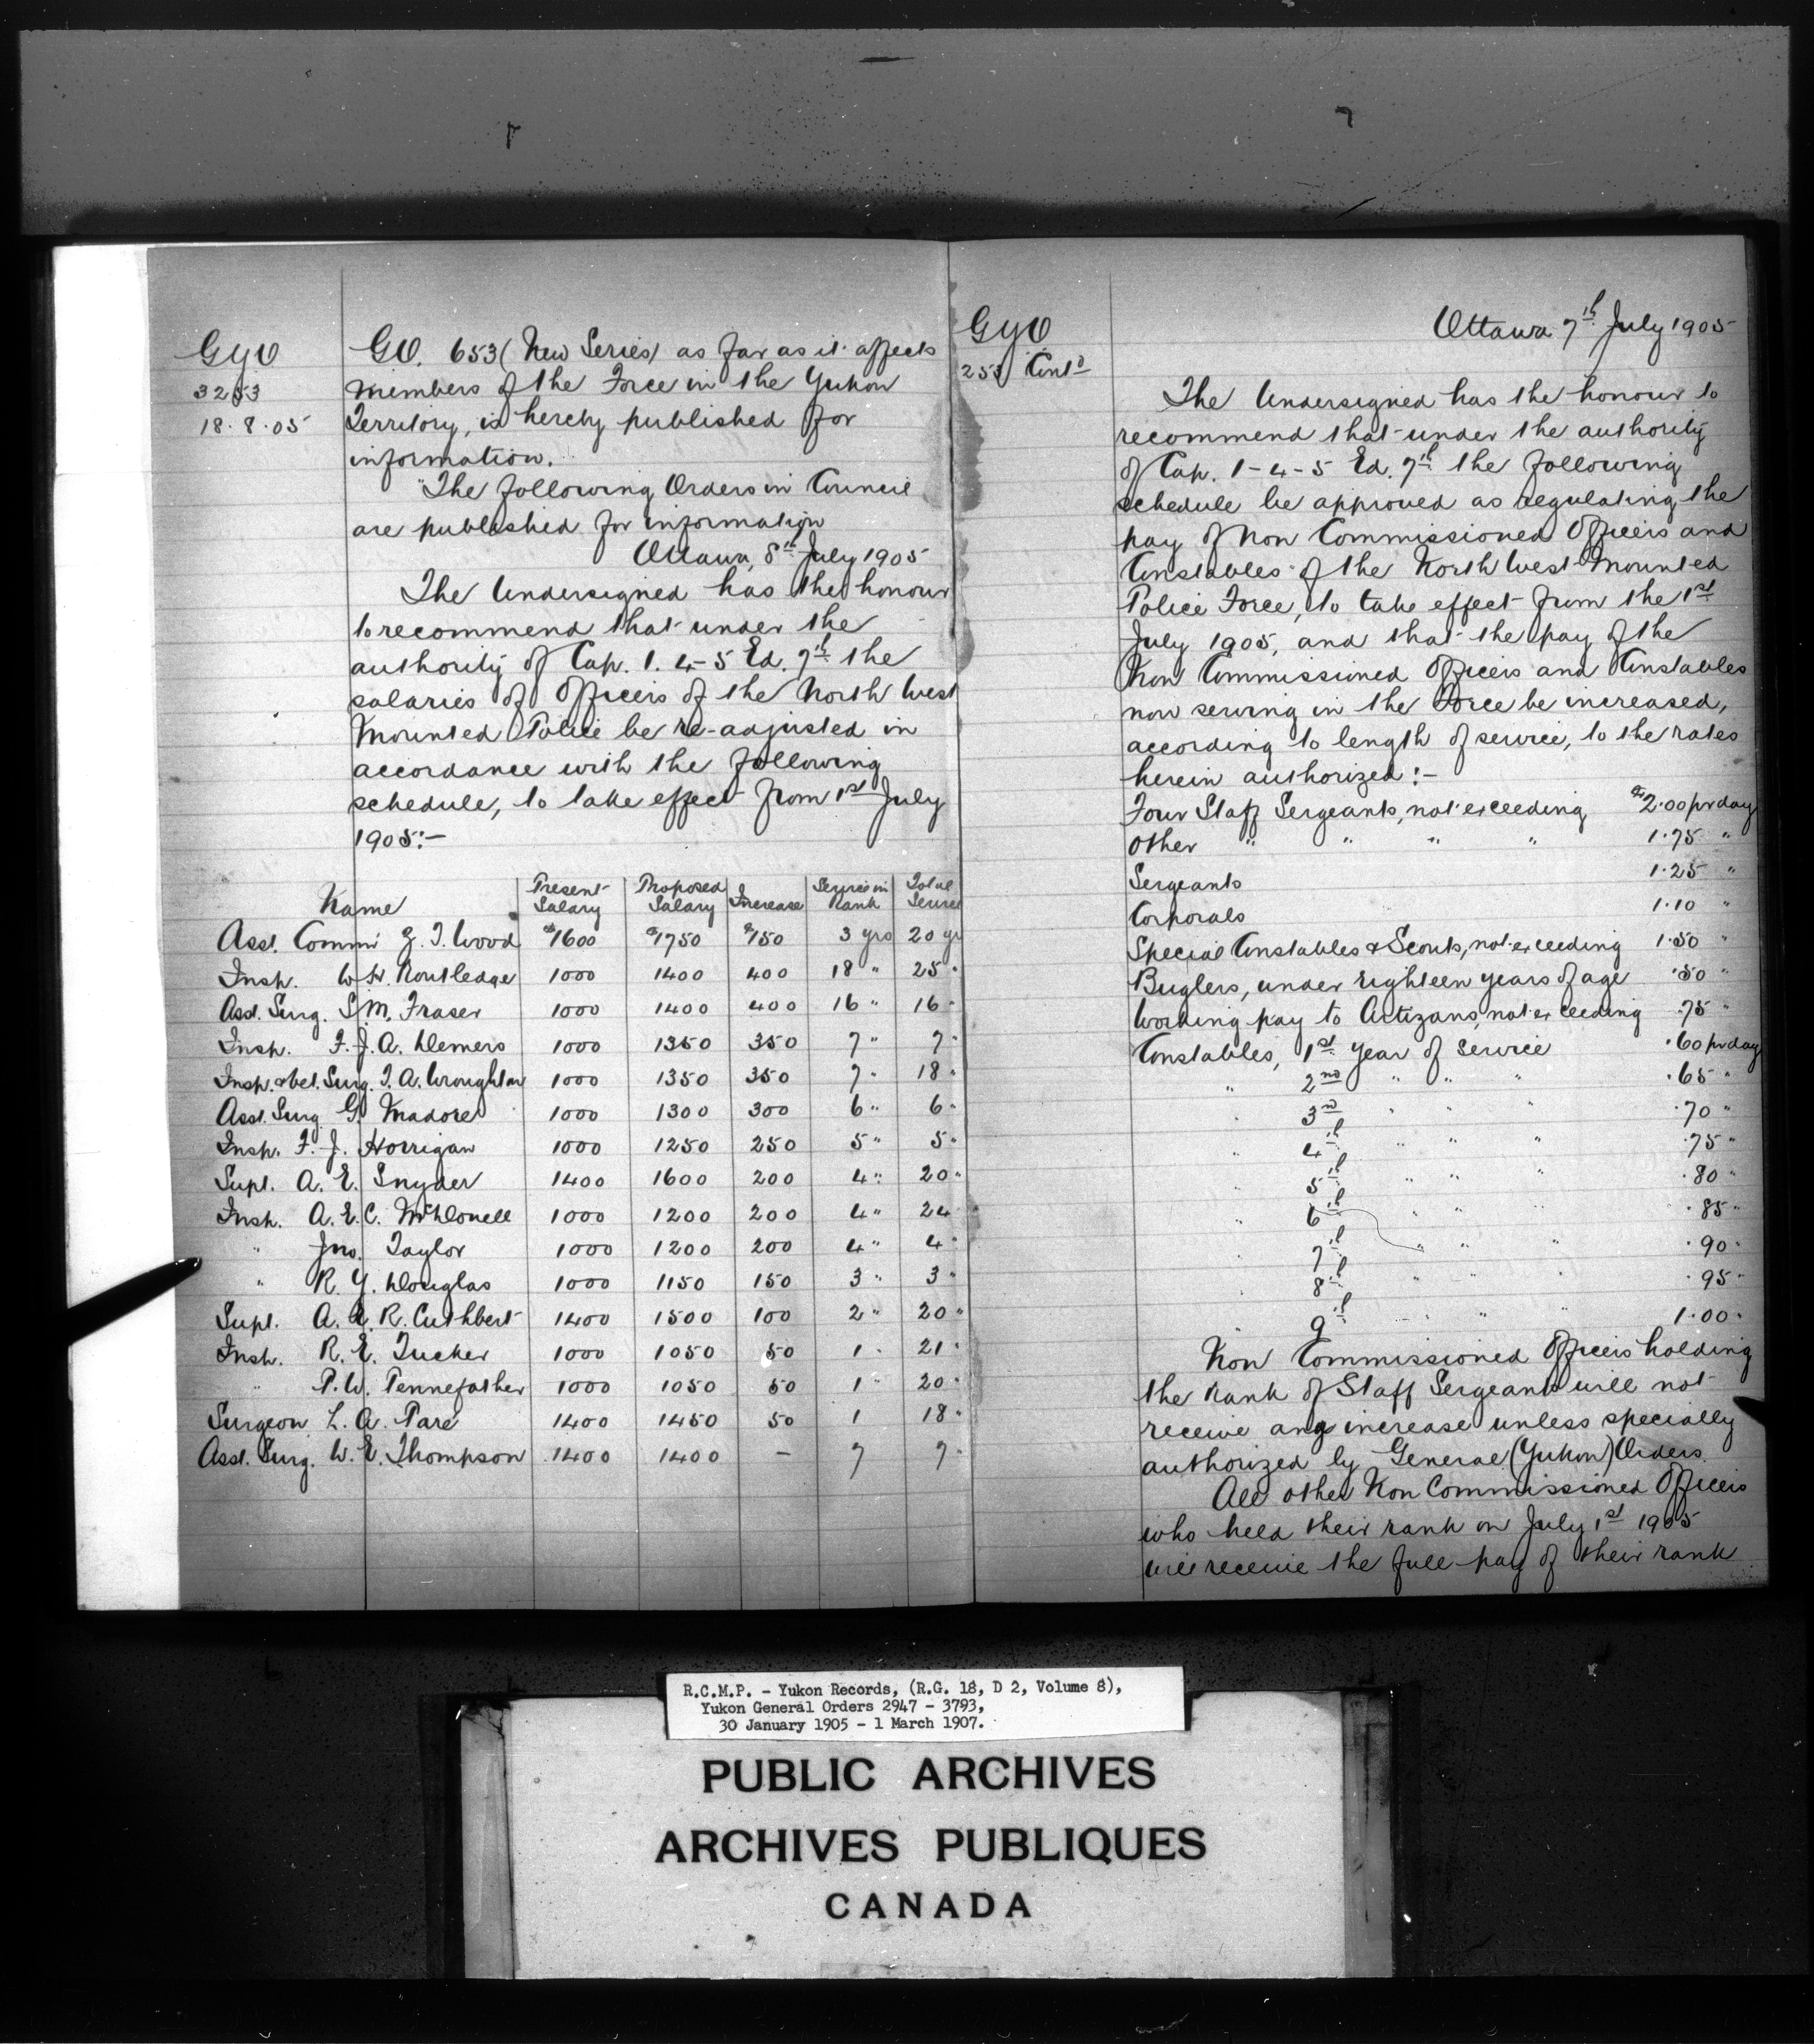 GYO
3253
18.8.05
G.O. 653 (New Series) as far as it affects
members of the Force in the Yukon
Territory, is hereby published for
information.
"The following Orders in Council
are published for information
Ottawa, 8th July 1905
The Undersigned has the honour
to recommend that under the
authority of Cap. 1. 4-5 Ed. 7th the
salaries of Officers of the North West
Mounted Police be re-adjusted in
accordance with the following
schedule, to take effect from 1st July
1905:-
Name Present Salary Proposed Salary Increase Service in Rank Total Service
Asst. Commr Z. T. Wood $1600 $1750 $150 3 yrs 20 yrs
Insp. W. H. Routledge 1000 1400 400 18 " 25 "
Asst. Surg. S. M. Fraser 1000 1400 400 16 " 16 "
Insp. F. J. A. Demers 1000 1350 350 7 " 7 "
Insp. & Vet. Surg. T. A. Wroughton 1000 1350 350 7 " 18 "
Asst. Surg. G. Madore 1000 1300 300 6 " 6 "
Insp. F. J. Horrigan 1000 1250 250 5 " 5 "
Supt. A. E. Snyder 1400 1600 200 4 " 20 "
Insp. A. E. C. McDonell 1000 1200 200 4 " 24
" Jno. Taylor 1000 1200 200 4 " 4 "
" R. Y. Douglas 1000 1150 150 3 " 3 "
Supt. A. E. R. Cuthbert 1400 1500 100 2 " 20 "
Insp. R. E. Tucker 1000 1050 50 1 " 21 "
" P. W. Pennefather 1000 1050 50 1 " 20 "
Surgeon L. A. Paré 1400 1450 50 1 18 "
Asst. Surg. W. E. Thompson 1400 1400 - 7 7 "
GYO
253 Contd
Ottawa 7th July 1905
The Undersigned has the honour to
recommend that under the authority
of Cap. 1-4-5 Ed. 7th the following
schedule be approved as regulating the
pay of Non Commissioned Officers and
Constables of the North West Mounted
Police Force, to take effect from the 1st
July 1905, and that the pay of the
Non Commissioned Officers and Constables
now serving in the Force be increased,
according to length of service, to the rates
herein authorized:-
Four Staff Sergeants, not exceeding $2.00 pr day
Other " " " " 1.75 "
Sergeants 1.25 "
Corporals 1.10 "
Special Constables & Scouts, not exceeding 1.50 "
Buglers, under eighteen years of age .50 "
Working pay to Artizans, not exceeding .75 "
Constables, 1st year of service .60 pr day
" 2nd " " " .65 "
" 3rd " " " .70 "
" 4th " " " .75 "
" 5th " " " .80 "
" 6th " " " .85 "
" 7th " " " .90 "
" 8th " " " .95 "
" 9th " " " 1.00 "
Non Commissioned Officers holding
the rank of Staff Sergeant will not
receive any increase unless specially
authorized by General (Yukon) Orders.
All other Non Commissioned Officers
who held their rank on July 1st 1905
will receive the full pay of their rank
R.C.M.P. - Yukon Records, (R.G. 18, D 2, Volume 8),
Yukon General Orders 2947 - 3793,
30 January 1905 - 1 March 1907.
PUBLIC ARCHIVES
ARCHIVES PUBLIQUES
CANADA